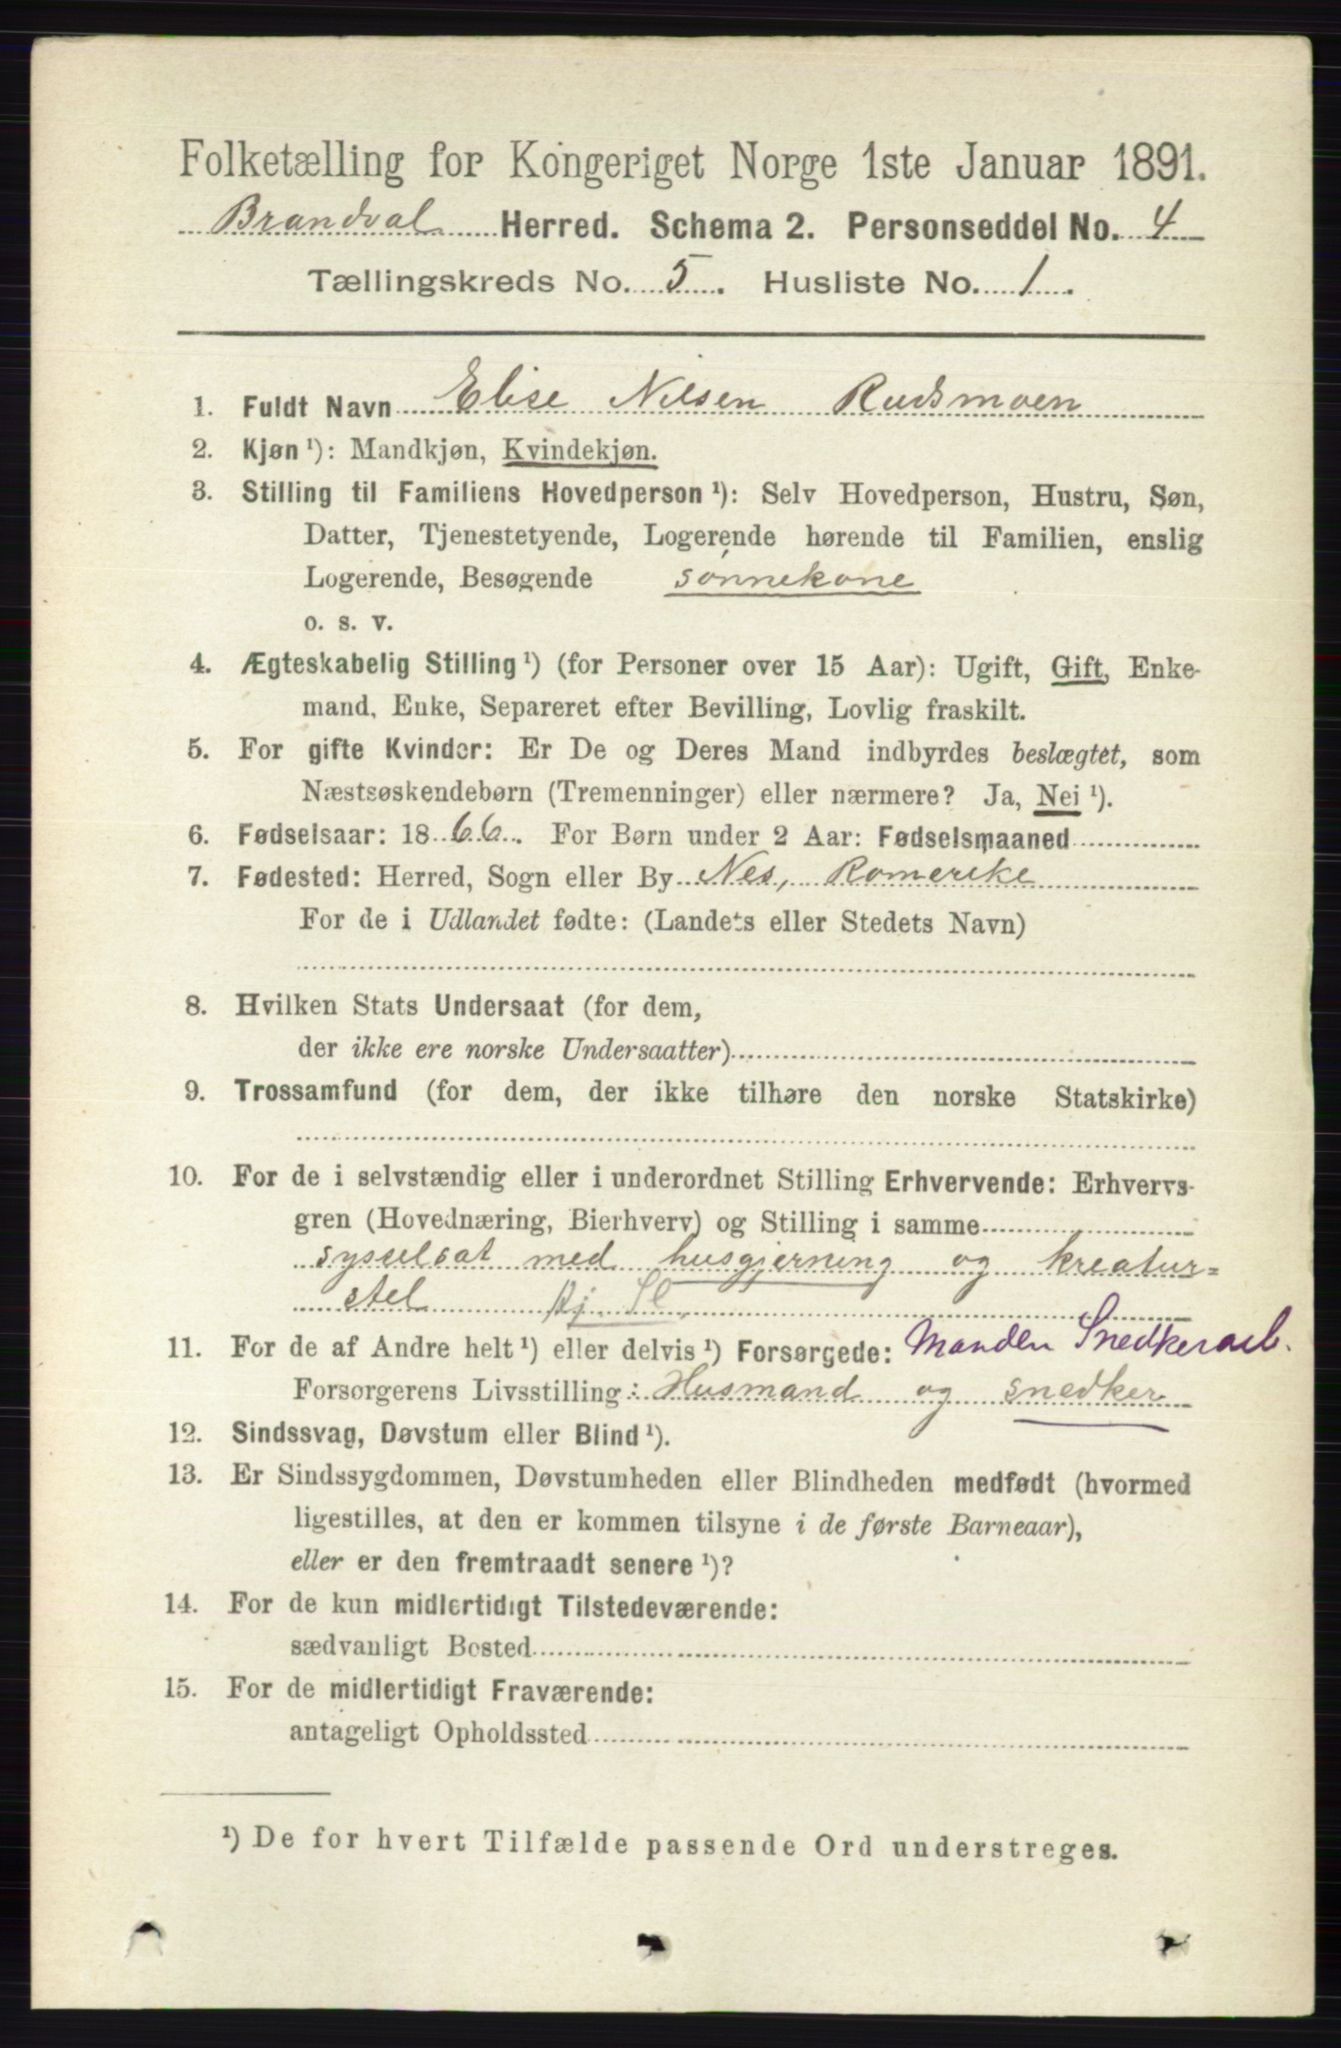 Folketælling for Kongeriget Norge 1ste Januar 1891.
Brandval Herred. Schema 2. Personseddel No. 4
Tællingskreds No. 5. Husliste No. 1.
1. Fuldt Navn Elise Nilsen Rudsmoen
2. Kjøn ¹): Mandkjøn, Kvindekjøn.
3. Stilling til Familiens Hovedperson ¹): Selv Hovedperson, Hustru, Søn,
Datter, Tjenestetyende, Logerende hørende til Familien, enslig
Logerende, Besøgende sønnekone
o. s. v.
4. Ægteskabelig Stilling ¹) (for Personer over 15 Aar): Ugift, Gift, Enke-
mand, Enke, Separeret efter Bevilling, Lovlig fraskilt.
5. For gifte Kvinder: Er De og Deres Mand indbyrdes beslægtet, som
Næstsøskendebørn (Tremenninger) eller nærmere? Ja, Nei ¹).
6. Fødselsaar: 1866. For Børn under 2 Aar: Fødselsmaaned
7. Fødested: Herred, Sogn eller By Nes, Romerike
For de i Udlandet fødte: (Landets eller Stedets Navn)
8. Hvilken Stats Undersaat (for dem,
der ikke ere norske Undersaatter)
9. Trossamfund (for dem, der ikke tilhøre den norske Statskirke)
10. For de i selvstændig eller i underordnet Stilling Erhvervende: Erhvervs-
gren (Hovednæring, Bierhverv) og Stilling i samme
sysselsat med husgjerning og kreatur-
stel
11. For de af Andre helt ¹) eller delvis ¹) Forsørgede: Manden Snedkerarb.
Forsørgerens Livsstilling: Husmand og snedker
12. Sindssvag, Døvstum eller Blind ¹).
13. Er Sindssygdommen, Døvstumheden eller Blindheden medfødt (hvormed
ligestilles, at den er kommen tilsyne i de første Barneaar),
eller er den fremtraadt senere ¹)?
14. For de kun midlertidigt Tilstedeværende:
sædvanligt Bosted
15. For de midlertidigt Fraværende:
antageligt Opholdssted
¹) De for hvert Tilfælde passende Ord understreges.